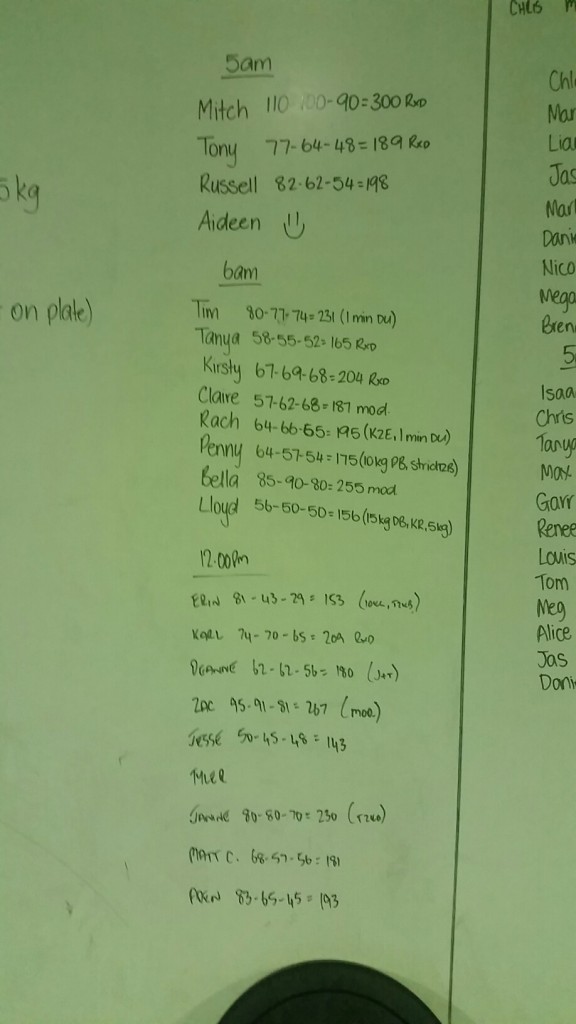 CHRIS
5am
Mitch 110 100-90=300 RxD
Tony 77-64-48=189 RxD
Russell 82-62-54=198
Aideen
5kg
on plate)
6am
Tim 80-77-74=231 (1 min DU)
Tanya 58-55-52=165 RxD
Kirsty 67-69-68=204 RxD
Claire 57-62-68=187 mod.
Rach 64-66-65=195 (K2E, 1 min DU)
Penny 64-57-54=175 (10kg DB,
Bella 85-90-80=255 mod
Lloyd 56-50-50=156 (15kg DB, KR, 5kg)
12.00pm
ERIN 81-43-29=153
KARL 74-70-65=209 RxD
DEANNE 62-62-56=180
ZAC 95-91-81=267 (mod.)
JESSE 50-45-48=143
TYLER
JANINE 80-80-70=230
MATT C. 68-57-56=181
83-65-45=193
Chl
Mar
Lia
Jas
Mar
Dani
Nico
Mega
Bren
5
Isaa
Chris
Tanya
Max
Garr
Renee
Louis
Tom
Meg
Alice
Jas
Dani